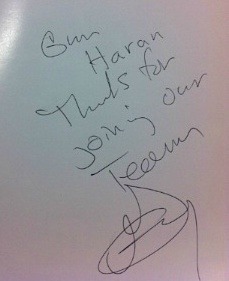 Gun
Haran
Thanks for
joining our
Team